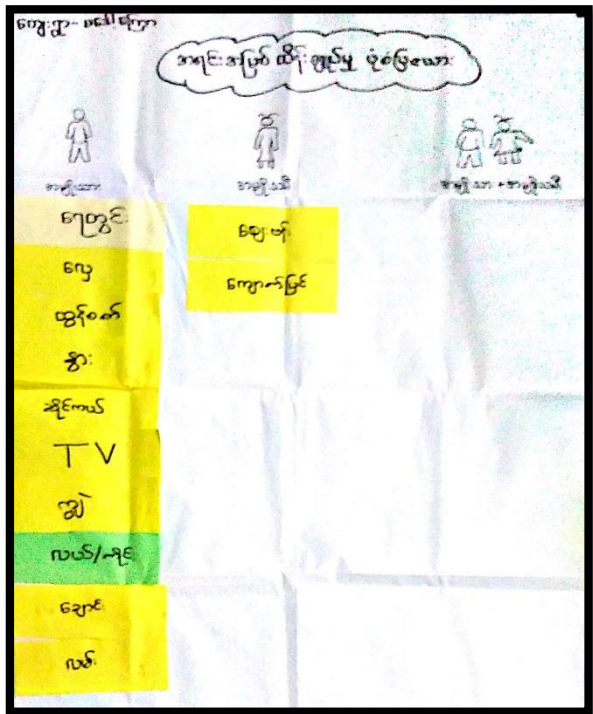 ကျေးရွာ-
အရင်းအမြစ် ထိန်းချုပ်မှု ပုံစံပြဇယား
အမျိုးသား
အမျိုးသမီး
အမျိုးသား + အမျိုးသမီး
ရေတွင်း
လှေ
ထွန်စက်
နွား
ဆိုင်ကယ်
TV
ကျွဲ
လယ်/
ချောင်း
လမ်း
ဈေးဗန်း
ကျောက်ပြင်